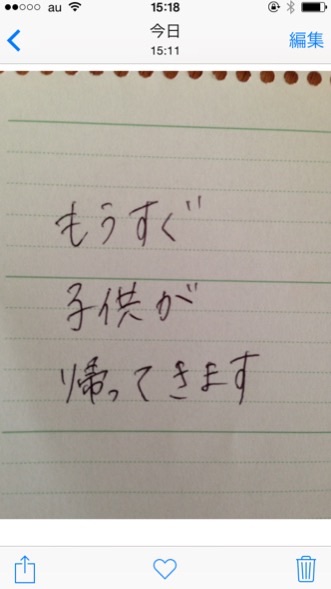 au 15:18
今日
15:11
編集
もうすぐ
子供が
帰ってきます